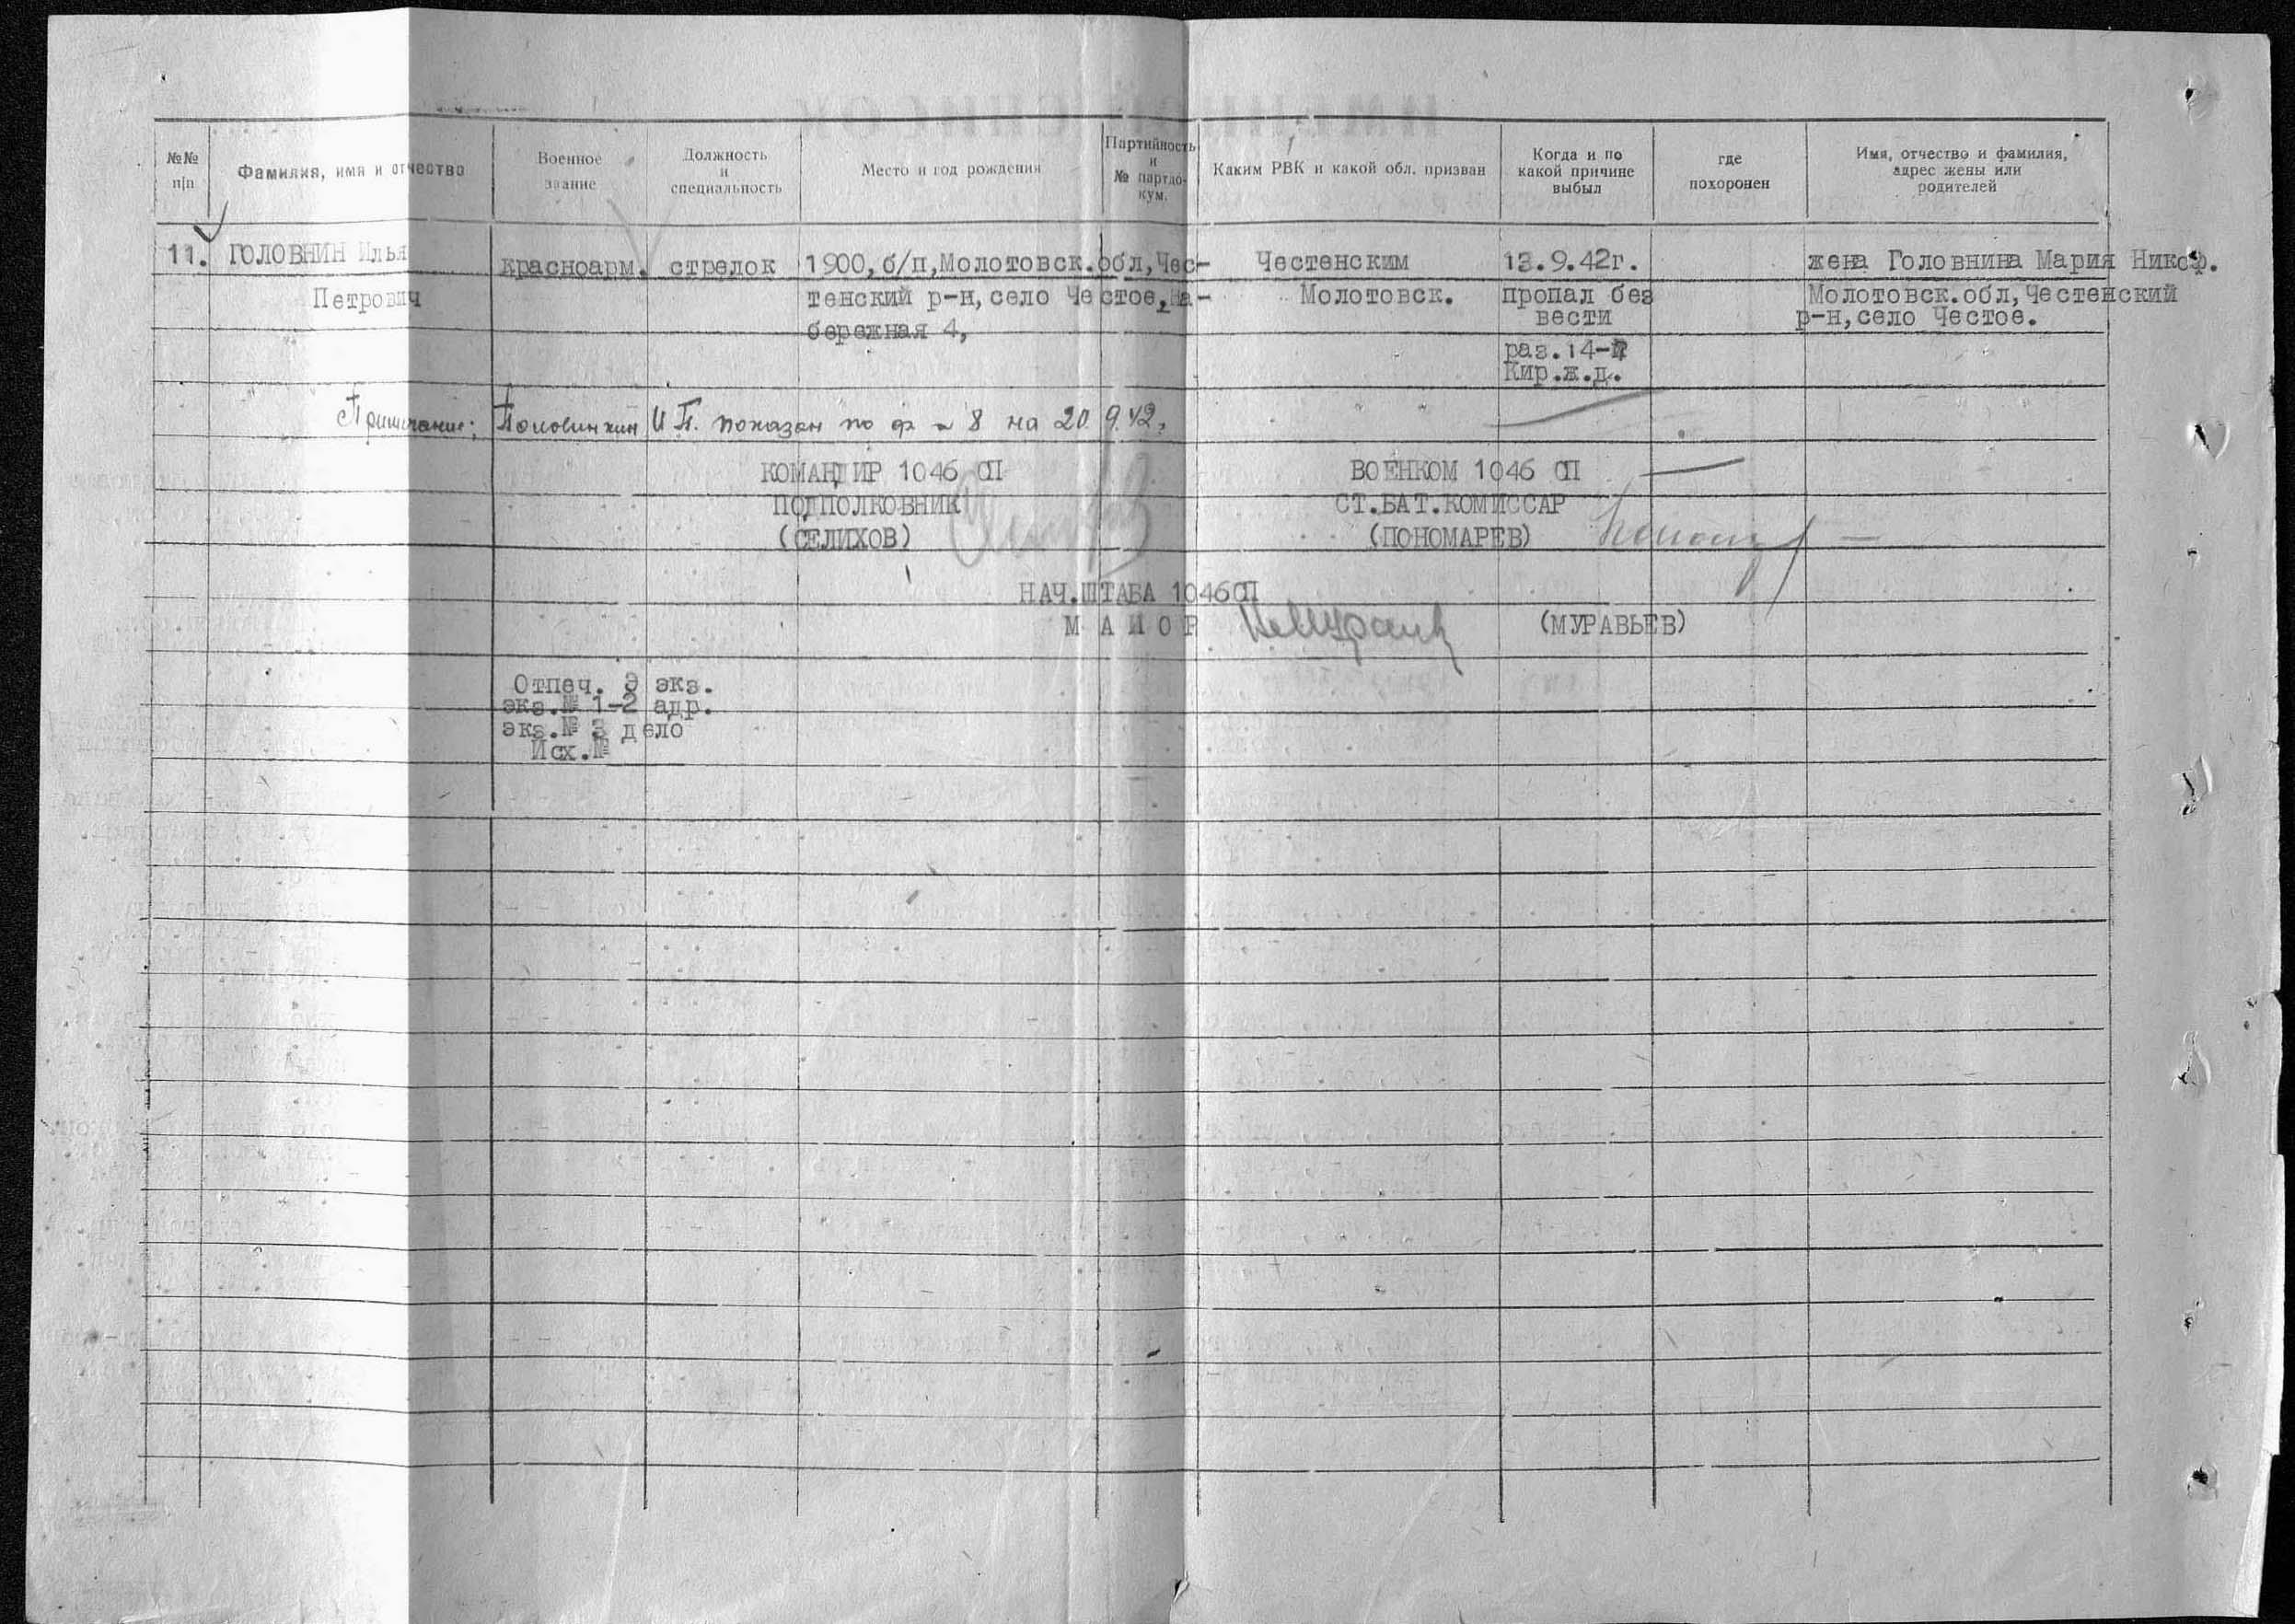 №№ п|п
Фамилия, имя и отчество
Военное звание
Должность и специальность
Место и год рождения
Партийность и № партдокум.
Каким РВК и какой обл. призван
Когда и по какой причине выбыл
где похоронен
Имя, отчество и фамилия, адрес жены или родителей
11. ГОЛОВНИН Илья
Петрович
красноарм.
стрелок
1900,б/п,Молотовск.обл,Чес-
тенский р-н,село Честое,На-
бережная 4,
Честенским
Молотовск.
13.9.42г.
пропал без
вести
раз.14-й
Кир.ж.д.
жена Головнина Мария Никоф.
Молотовск.обл,Честенский
р-н,село Честое.
Примечание: Половинкин И П. показан по ф № 8 на 20 9.42.
КОМАНДИР 1046 СП
ПОДПОЛКОВНИК
(СЕЛИХОВ)
ВОЕНКОМ 1046 СП
СТ.БАТ.КОМИССАР
(ПОНОМАРЕВ)
НАЧ.ШТАБА 1046СП
МАЙОР (МУРАВЬЕВ)
Отпеч. 3 экз.
экз.№ 1-2 адр.
экз.№ 3 дело
Исх.№